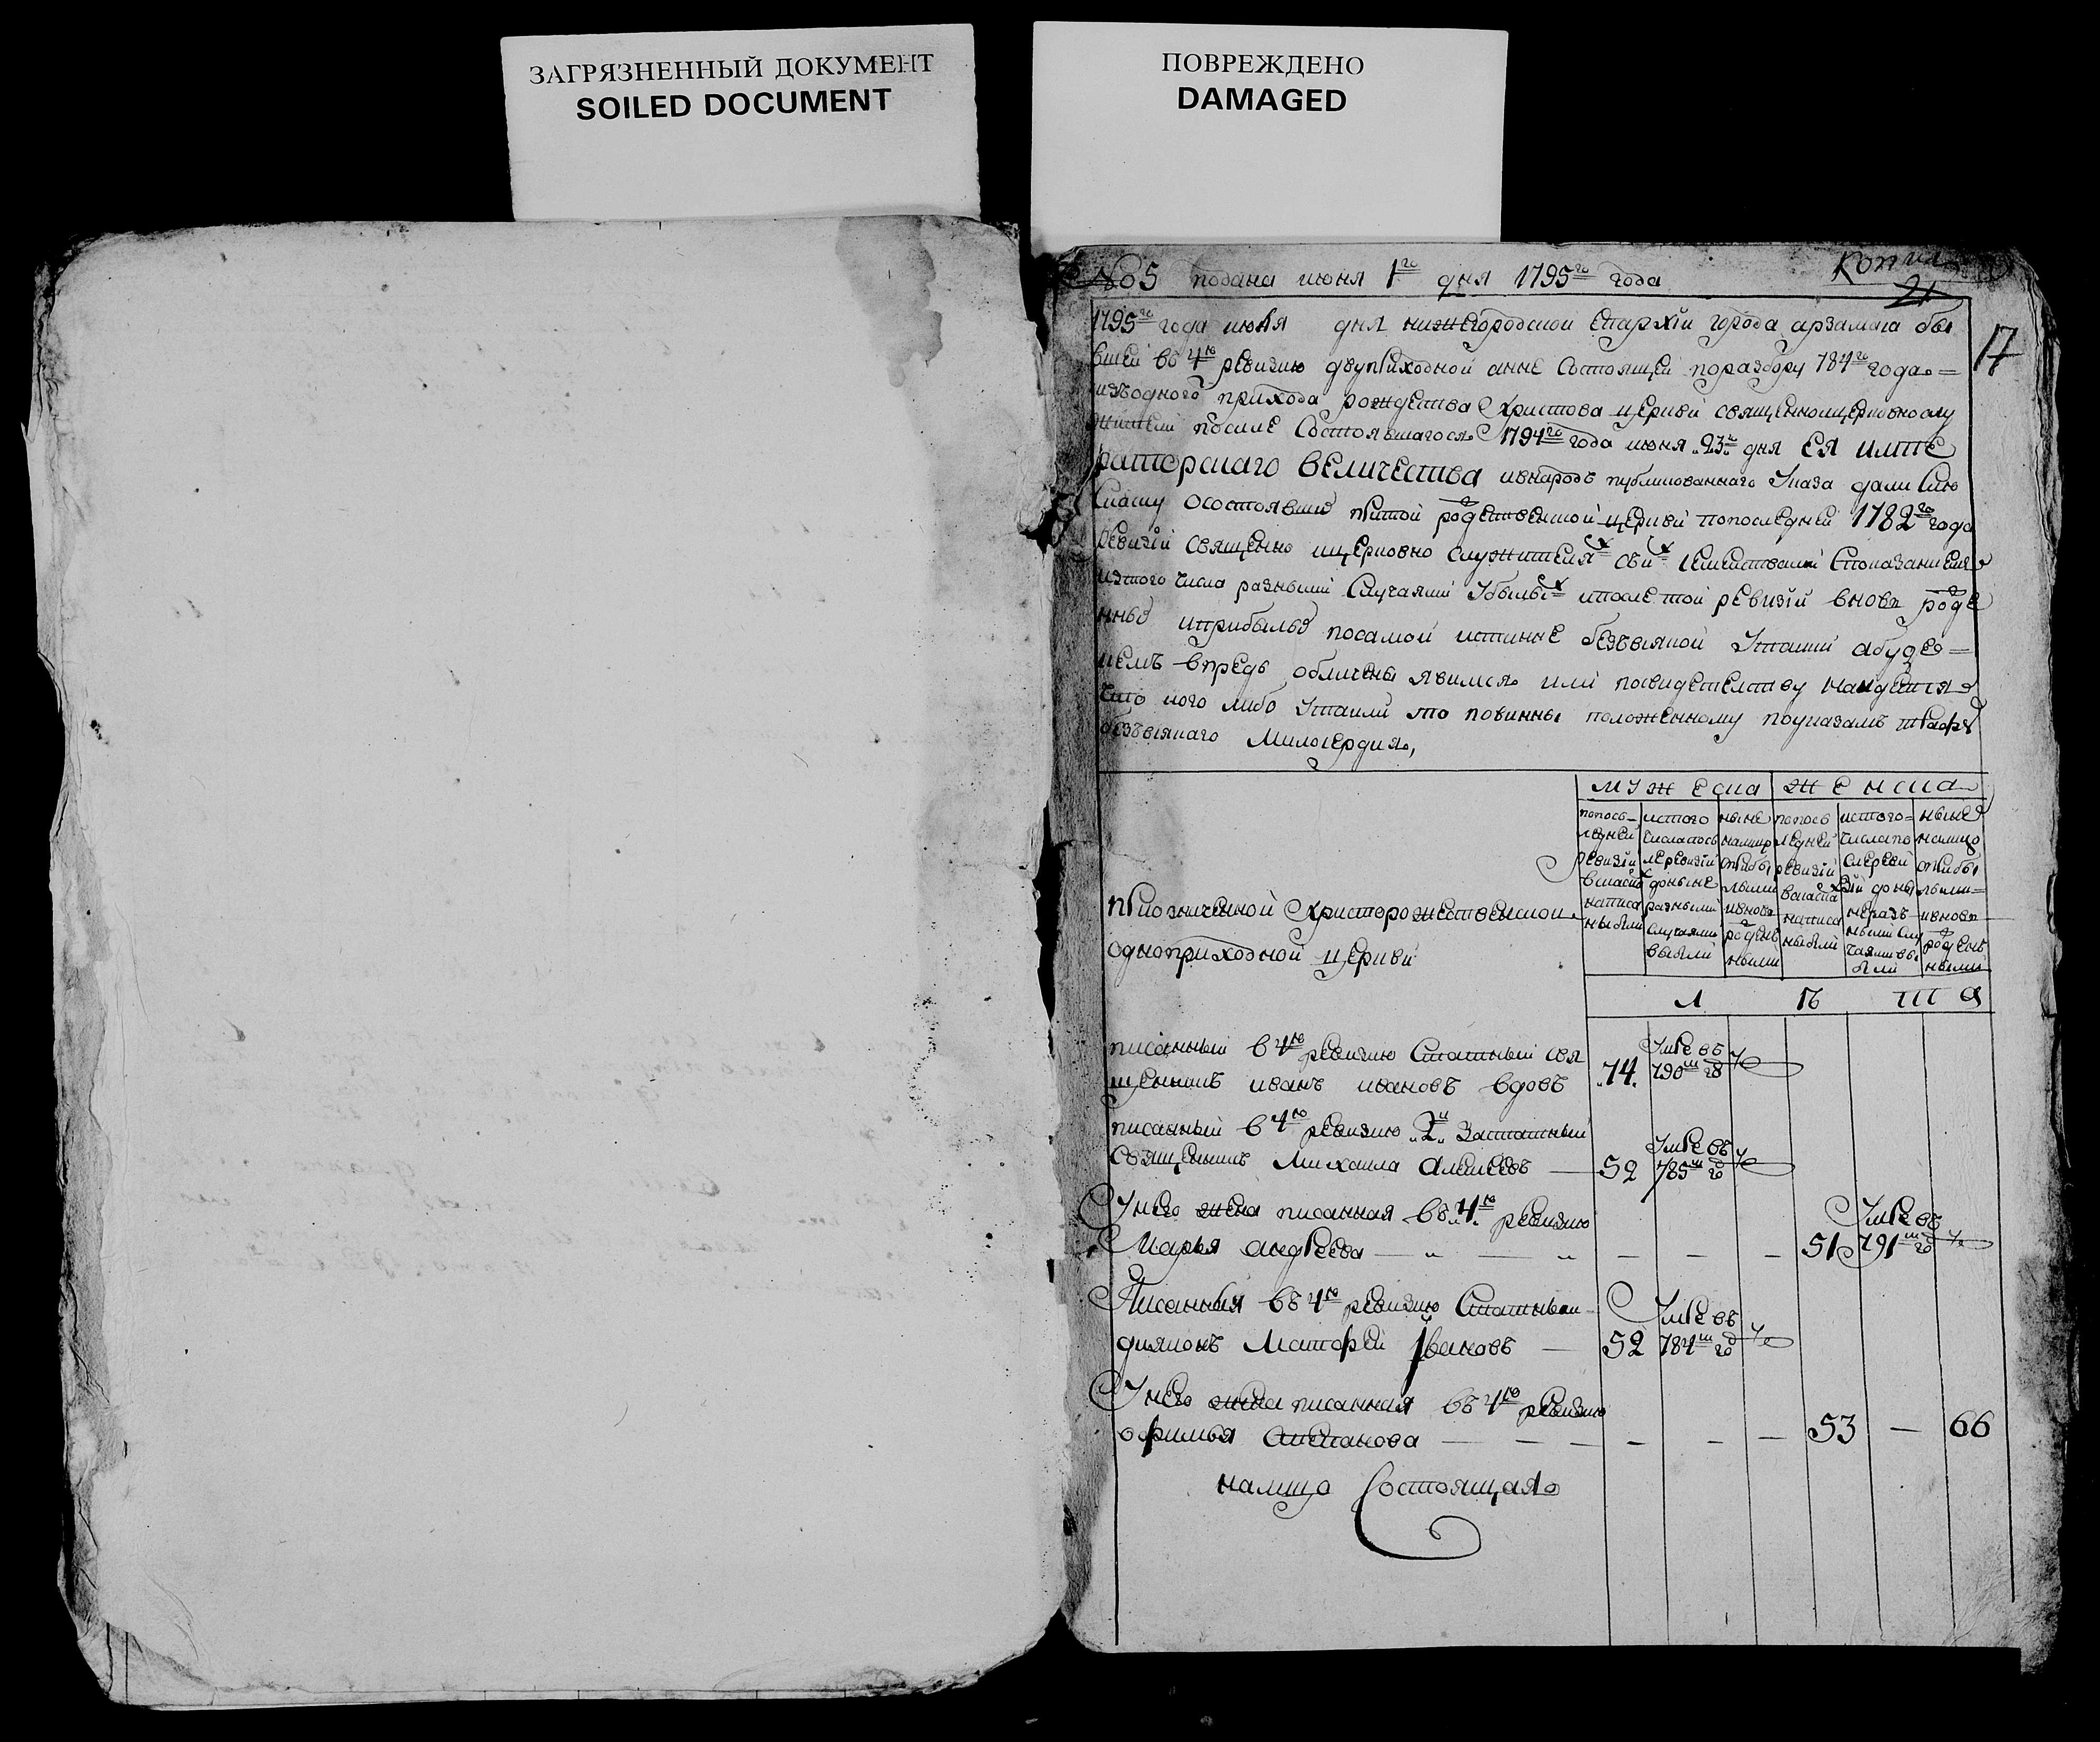 ЗАГРЯЗНЕННЫЙ ДОКУМЕНТ
SOILED DOCUMENT
ПОВРЕЖДЕНО
DAMAGED
№ 5 подана июня 1го дня 1795го года
Копия
21
17
1795го года июня дня нижегородской епархїи города арзамаса бы
вшей въ 4ю ревизию двуприходной а нне состоящей поразбору 784го года
изъодного прихода рождества Христова церкви священноцерковнослу
жители после состоявшагося 1794го года июня 23го дня ЕЯ ИМПЕ
раторскаго величества ивнародъ публикованнаго Указа дали сию
скаску осостоявше притой рождественской церкви попоследней 1782го года
ревизїи священно ицерковно служителях сыих семействами спаказанием
изтого числа разными случаями убылых ипосле той ревизїи вновь рожде
нные иприбылые посамой истинне безъвсякой Утайки абуде
чемъ впредь обличены явимся или посвидетелству найдется
что кого либо утаили то повинны положенному поуказамъ штрафу
безъвсякаго милосердия,
мужеска женска
попоследней ревизїи вскаске написаны были
истого числа после ревизїи доныне разными случаями выбыли
ныне налицо сприбылыми ивновь рожденными
попоследней ревизїи вскаске написаны были
истого числа после ревизїи доныне разными случаями выбыли
ныне налицо сприбылыми ивновь рожденными
приозначенной Христорожественской
одноприходной церкви
лѣта
писанный в 4ю ревизию статный свя
щенникъ иванъ ивановъ вдовъ 74 Умре въ 790м го
писанный в 4ю ревизию 2й заштатный
священникъ Михаила алексеевъ — 52 Умре въ 785м го
Унего жена писанная въ 4ю ревизию
Марья андреева — — — — 51 Умре въ 791м го
Писанный въ 4ю ревизию статный
дияконъ Матфей Ивановъ — 52 Умре въ 784м го
Унего жена писанная въ 4ю ревизию
офимья степанова — — — — — — 53 — 66
налицо состоящая